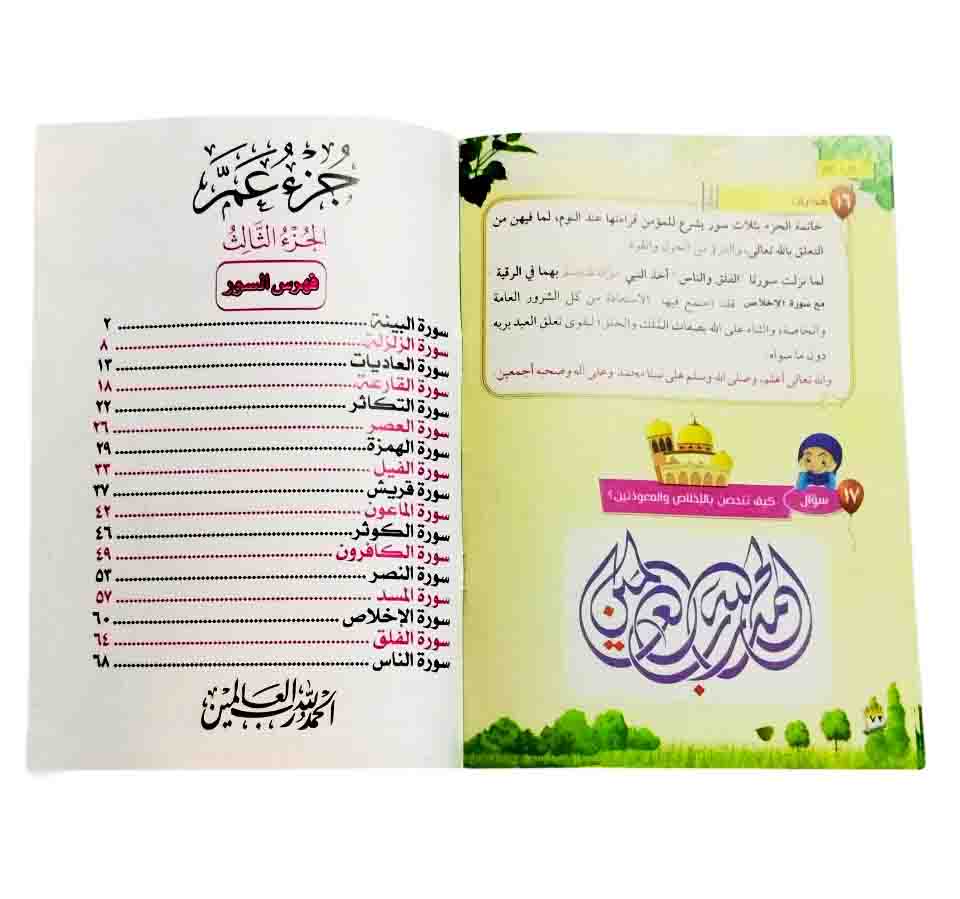 هدايات
١٦
خاتمة الجزء بثلاث سور يشرع للمؤمن قراءتها عند النوم، لما فيهن من
التعلق بالله تعالى، والتبرؤ من الحول والقوة.
لما نزلت سورتا "الفلق والناس" أخذ النبي بهما في الرقية
مع سورة الإخلاص فقد اجتمع فيها الاستعاذة من كل الشرور العامة
والخاصة، والثناء على الله بصفات الملك والخلق؛ ليقوى تعلق العبد بربه
دون ما سواه.
والله تعالى أعلم، وصلى الله وسلم على نبينا محمد وعلى آله وصحبه أجمعين.
١٧ سؤال كيف تتحصن بالإخلاص والمعوذتين؟
الحمد لله رب العالمين
٧٢
جُزْءُ عَمَّ
الجُزْءُ الثَّالِثُ
فهرس السور
سورة البينة ٢
سورة الزلزلة ٨
سورة العاديات ١٣
سورة القارعة ١٨
سورة التكاثر ٢٢
سورة العصر ٢٦
سورة الهمزة ٢٩
سورة الفيل ٣٣
سورة قريش ٣٧
سورة الماعون ٤٢
سورة الكوثر ٤٦
سورة الكافرون ٤٩
سورة النصر ٥٣
سورة المسد ٥٧
سورة الإخلاص ٦٠
سورة الفلق ٦٤
سورة الناس ٦٨
الحمد لله رب العالمين